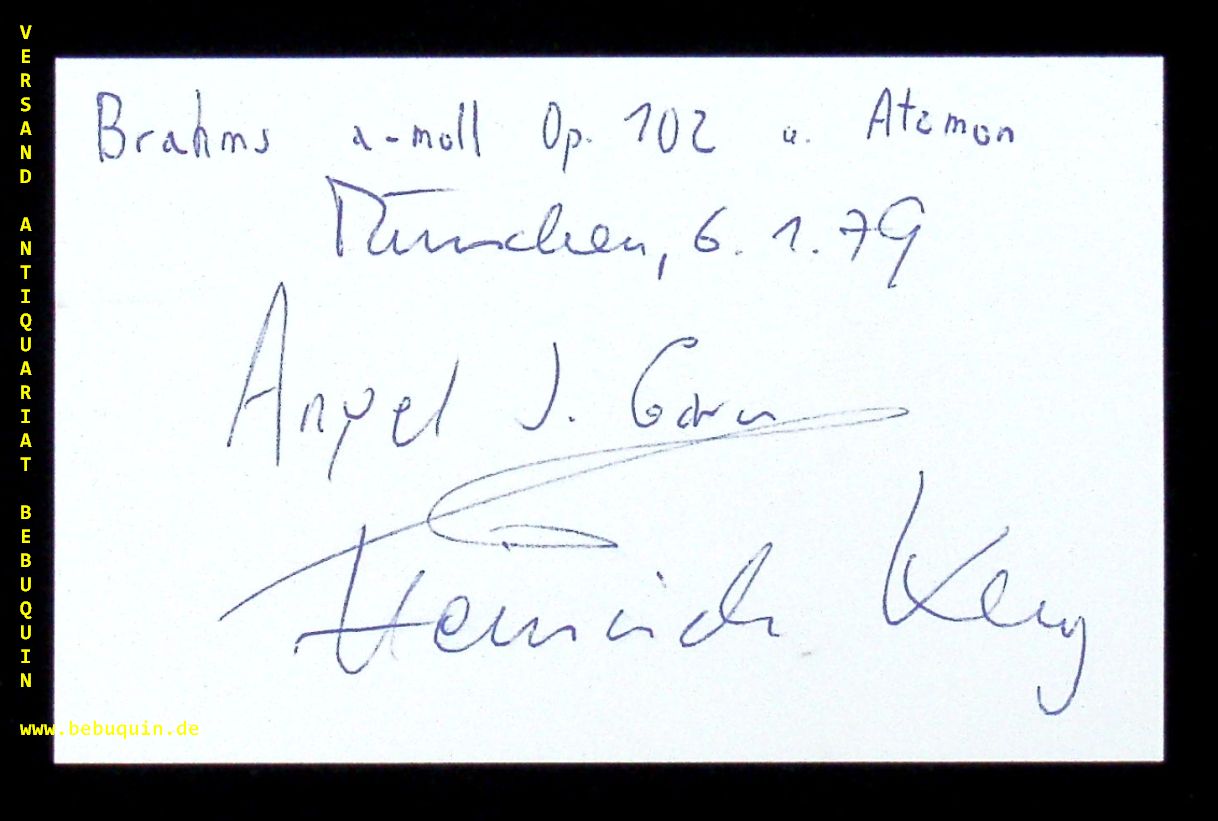 VERSAND ANTIQUARIAT BEBUQUIN
www.bebuquin.de
Brahms a-moll Op. 102 u. Atzmon
München, 6. 1. 79
Angel J. 
Heinrich